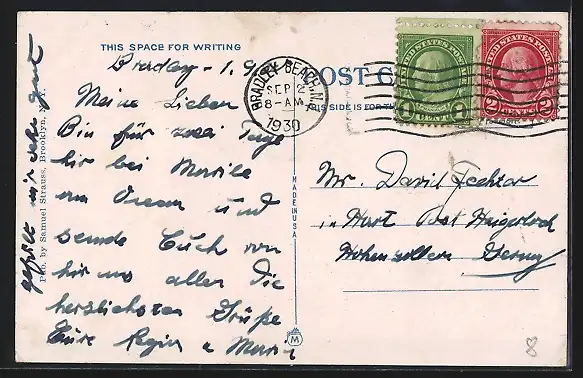 THIS SPACE FOR WRITING
Bradley - 1. 9.
Meine Lieben
Bin für zwei Tage
hir bei
am Ocean und
sende Euch von
hir aus allen die
herzlichsten Grüße
Eure Regin u
gefällt mir sehr gut
Pub. by Samuel Strauss, Brooklyn, N. Y.
MADE IN U.S.A.
M
POST C
THIS SIDE IS FOR TH
BRADLEY BEACH, N.J.
SEP 2
8-AM
1930
UNITED STATES POST
1 CENT 1
UNITED STATES POST
2 CENTS 2
Mr. David
in Hart Post Haigerloch
Hohenzollern Germy
8